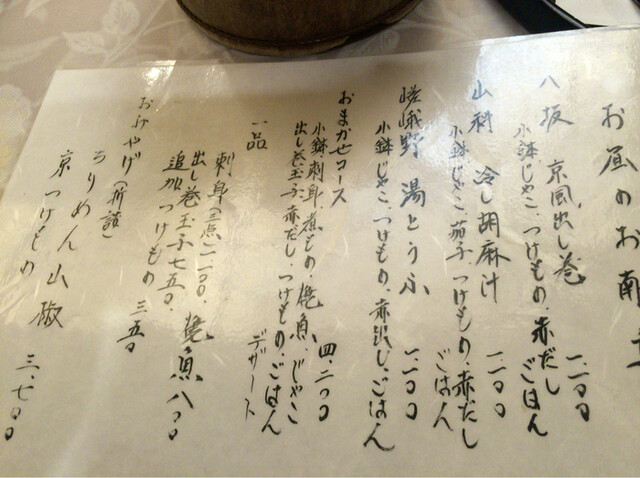 お昼のお献立
八坂 京風出し巻 一、一〇〇
小鉢.じゃこ.つけもの.赤だし
ごはん
山科 冷し胡麻汁 一、一〇〇
小鉢.じゃこ.茄子.つけもの.赤だし
ごはん
嵯峨野 湯とうふ 一、一〇〇
小鉢.じゃこ.つけもの.赤出し.ごはん
おまかせコース 四.二〇〇
小鉢.刺身.煮もの.焼魚.じゃこ
出し巻玉子.赤だし.つけもの.ごはん
デザート
一品
刺身(三点)一、一〇〇 焼魚 八〇〇
出し巻玉子 七五〇.
追加つけもの 三五〇
おみやげ(予談)
ちりめん山椒
京つけもの 三.七〇〇